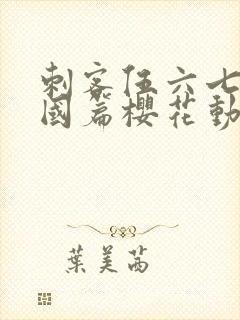 刺客伍六七
國篇櫻花動
葉美茜